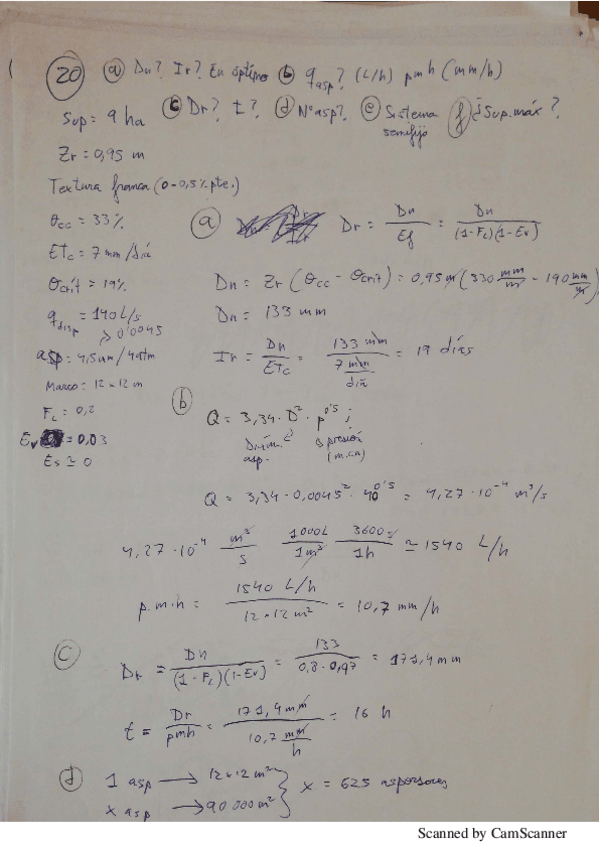 20 ⓐ Dn? Ir? En óptimo ⓑ q asp? (L/h) pmh (mm/h)
Sup = 9 ha ⓒ Dr? t? ⓓ Nº asp? ⓔ Sistema semifijo ⓕ ¿Sup. máx?
Zr = 0,95 m
Textura franca (0-0,5% pte.)
θcc = 33%
ETc = 7 mm/día
θcrit = 19%
q disp = 140 L/s
→ 0'0045
asp = 4,5 mm/4 atm
Marco = 12 × 12 m
FL = 0,2
Ev = 0,03
Es ≃ 0
ⓐ Dr = Dn / Ef = Dn / (1-FL)(1-Ev)
Dn = Zr (θcc - θcrit) = 0,95 m (330 mm/m - 190 mm/m)
Dn = 133 mm
Ir = Dn / ETc = 133 mm / 7 mm/día = 19 días
ⓑ
Q = 3,34 · D² · p^0'5 ;
Diám. asp. presión (m.c.a)
Q = 3,34 · 0,0045² · 40^0'5 = 4,27 · 10⁻⁴ m³/s
4,27 · 10⁻⁴ m³/s 1000L/1m³ 3600s/1h ≃ 1540 L/h
p.m.h = 1540 L/h / 12 × 12 m² = 10,7 mm/h
ⓒ
Dr = Dn / (1-FL)(1-Ev) = 133 / 0,8 · 0,97 = 171,4 mm
t = Dr / pmh = 171,4 mm / 10,7 mm/h = 16 h
ⓓ 1 asp → 12×12 m²
x asp → 90 000 m² } x = 625 aspersores
Scanned by CamScanner